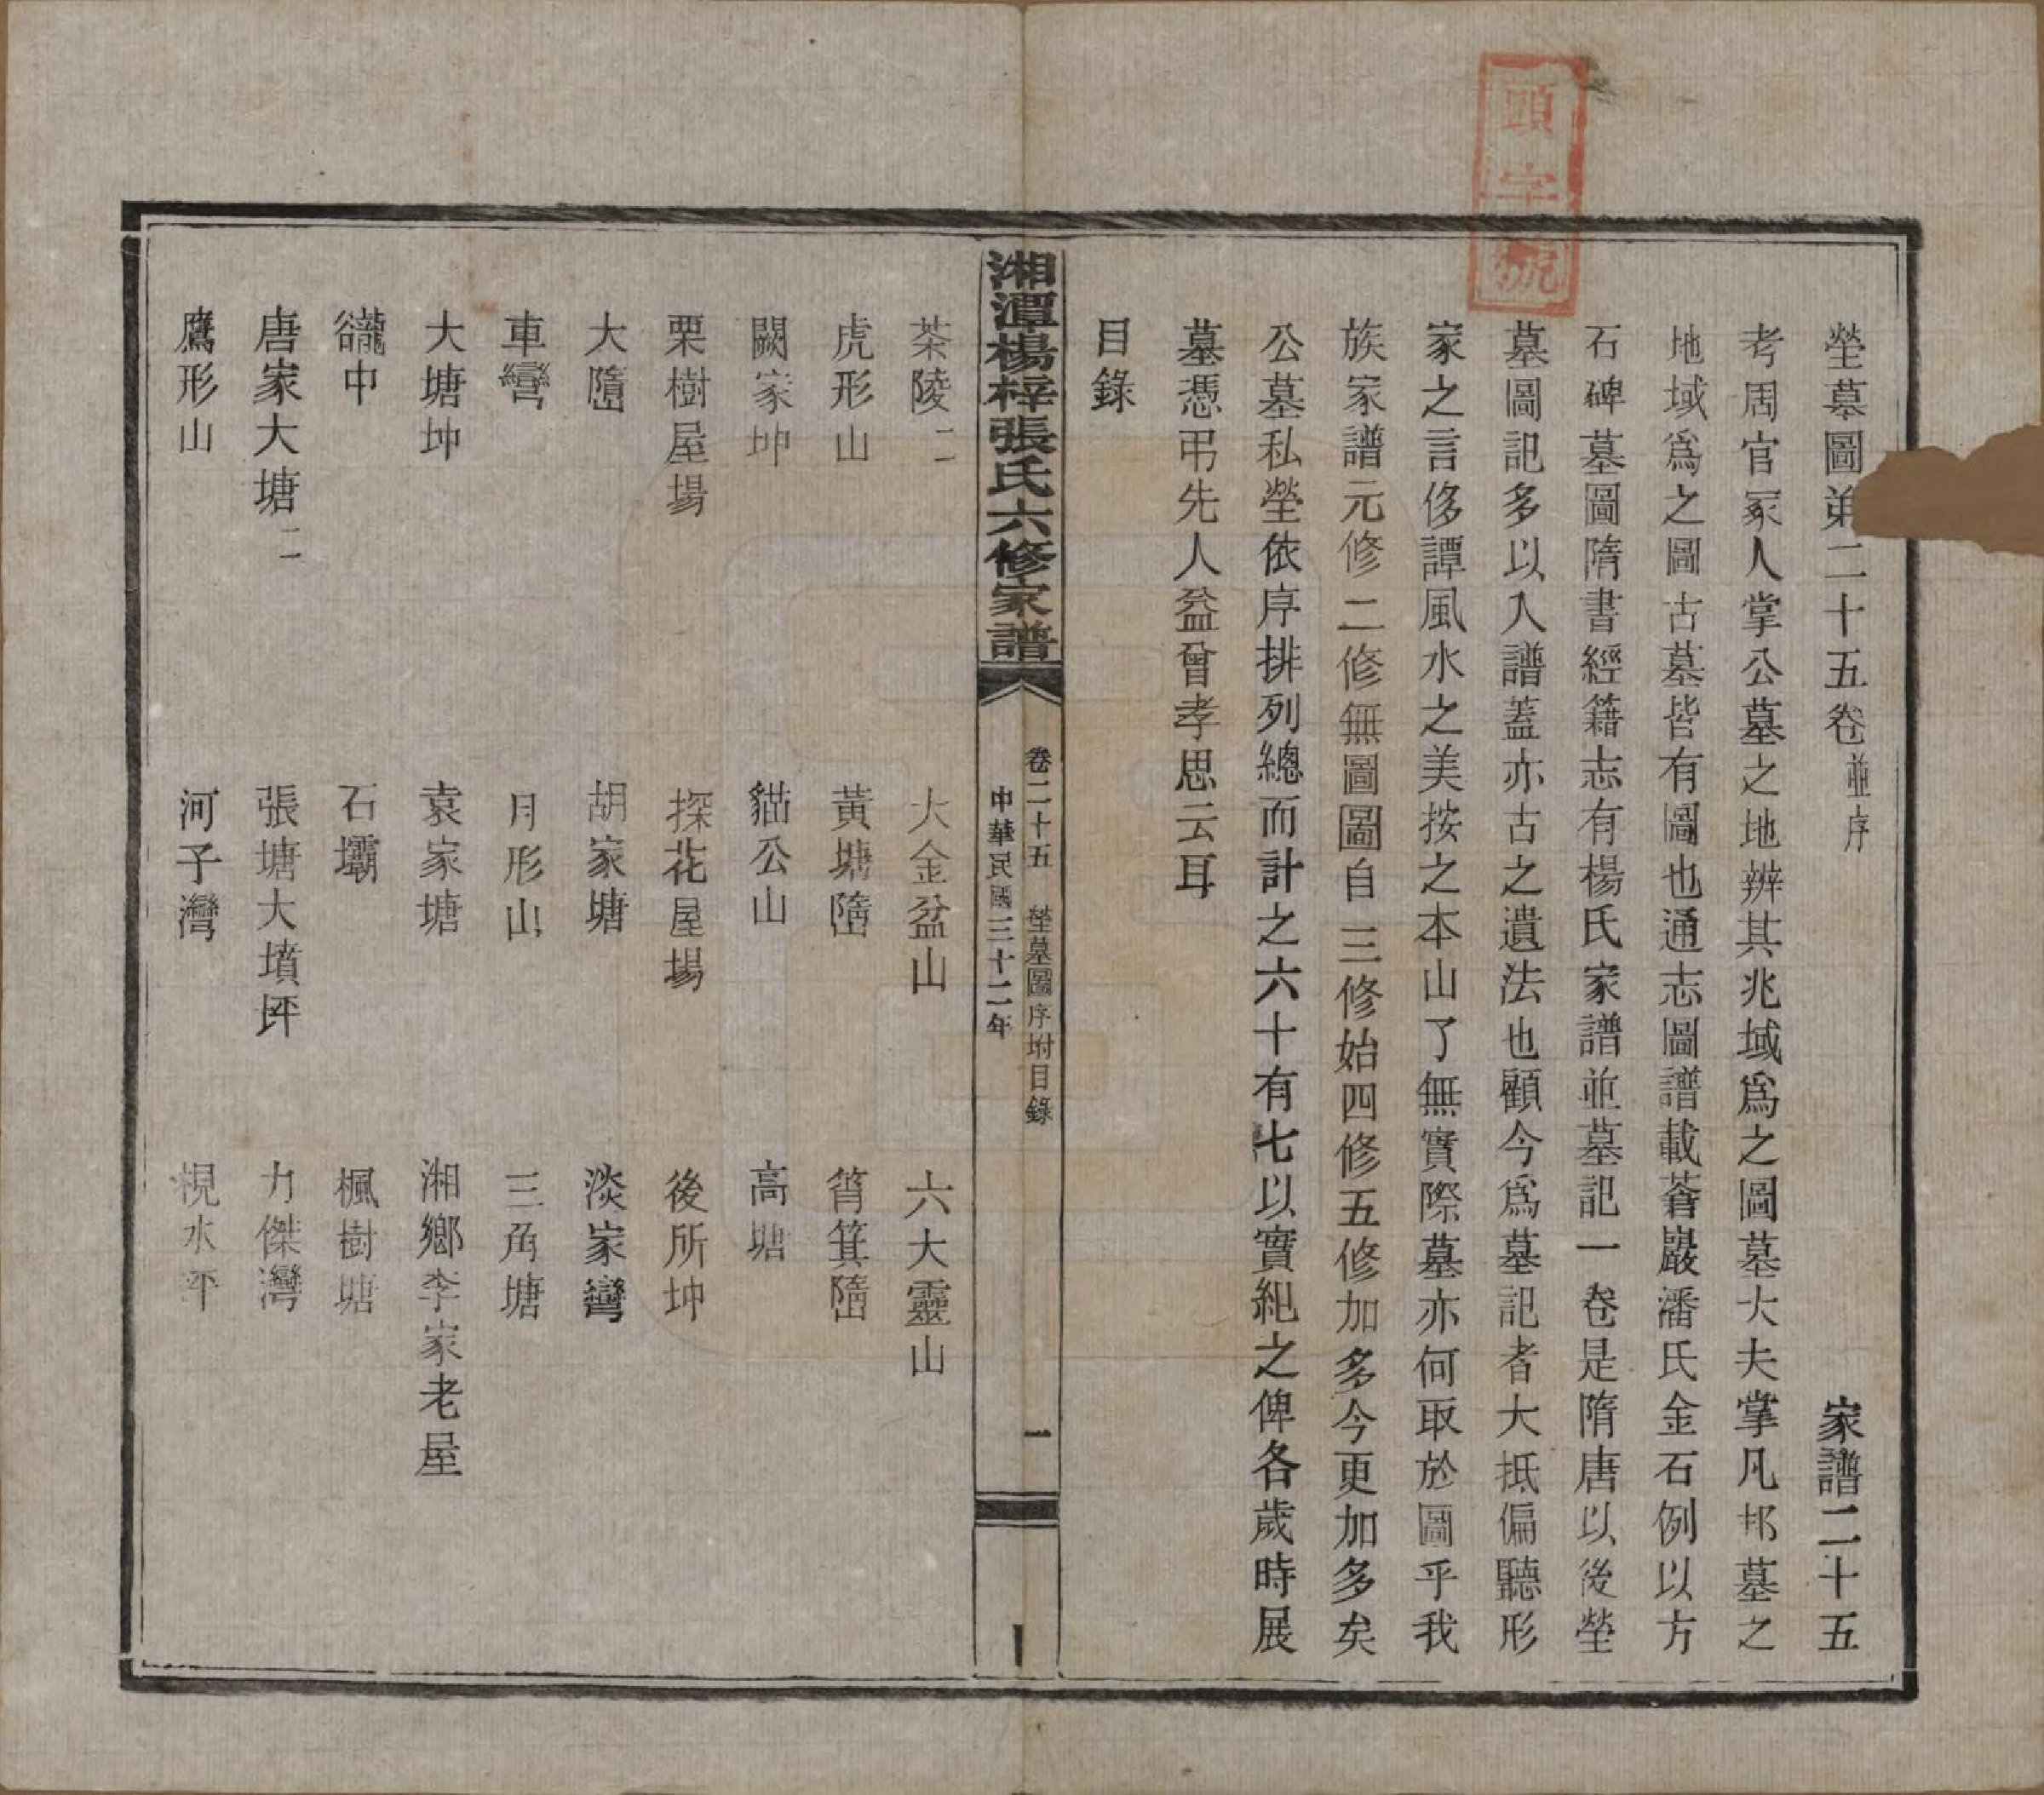 頭字號
塋墓圖弟二十五卷 並序
家譜二十五
考周官冢人掌公墓之地辨其兆域爲之圖墓大夫掌凡邦墓之
地域爲之圖古墓皆有圖也通志圖譜載蒼巖潘氏金石例以方
石碑墓圖隋書經籍志有楊氏家譜並墓記一卷是隋唐以後塋
墓圖記多以入譜蓋亦古之遺法也顧今爲墓記者大抵偏聽形
家之言侈譚風水之美按之本山了無實際墓亦何取於圖乎我
族家譜元修二修無圖圖自三修始四修五修加多今更加多矣
公墓私塋依序排列總而計之六十有七以實紀之俾各歲時展
墓憑弔先人益曾孝思云耳
目錄
湘潭楊梓張氏六修家譜
卷二十五 塋墓圖序坿目錄 一
中華民國三十二年
茶陵二 大金盆山 六大靈山
虎形山 黃塘𡺾 筲箕𡺾
闕家坤 貓公山 高塘
栗樹屋場 探花屋場 後所坤
大𡺾 胡家塘 淡家彎
車彎 月形山 三角塘
大塘坤 袁家塘 湘鄉李家老屋
谾中 石壩 楓樹塘
唐家大塘二 張塘大墳坪 力傑灣
鷹形山 河子灣 梘水坪